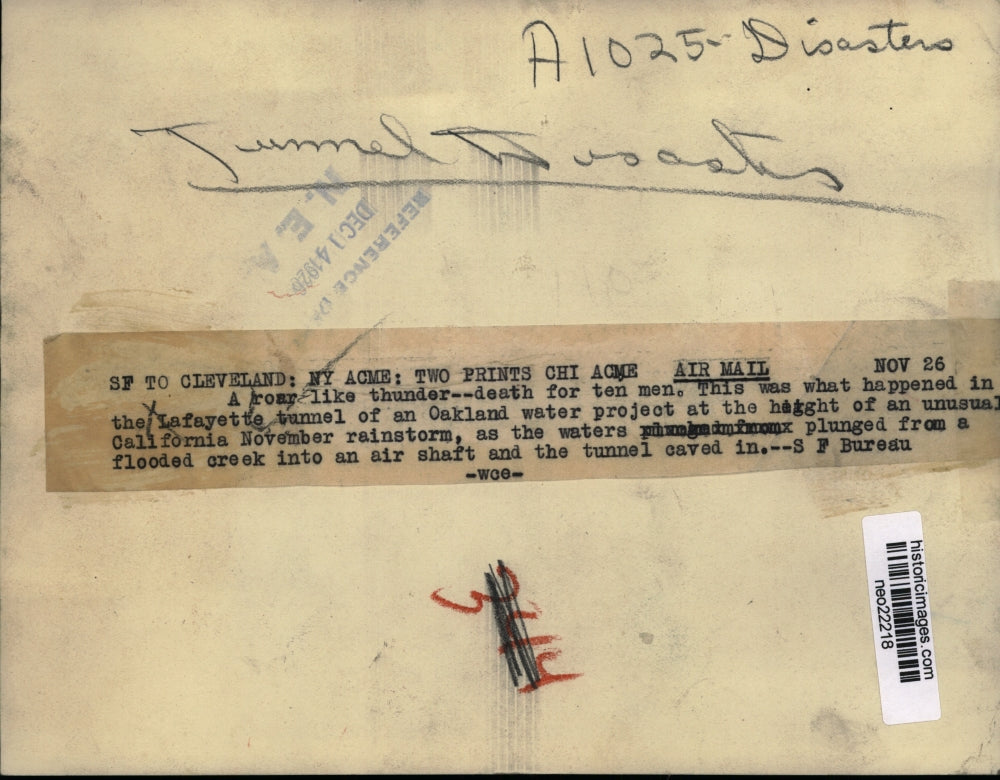 A1025- Disasters
Tunnel Disaster
N.E.A.
REFERENCE
DEC 14 192
SF TO CLEVELAND: NY ACME: TWO PRINTS CHI ACME AIR MAIL NOV 26
A roar like thunder--death for ten men. This was what happened in
the Lafayette tunnel of an Oakland water project at the height of an unusual
California November rainstorm, as the waters plunged from a
flooded creek into an air shaft and the tunnel caved in.--S F Bureau
-wce-
historicimages.com
neo22218